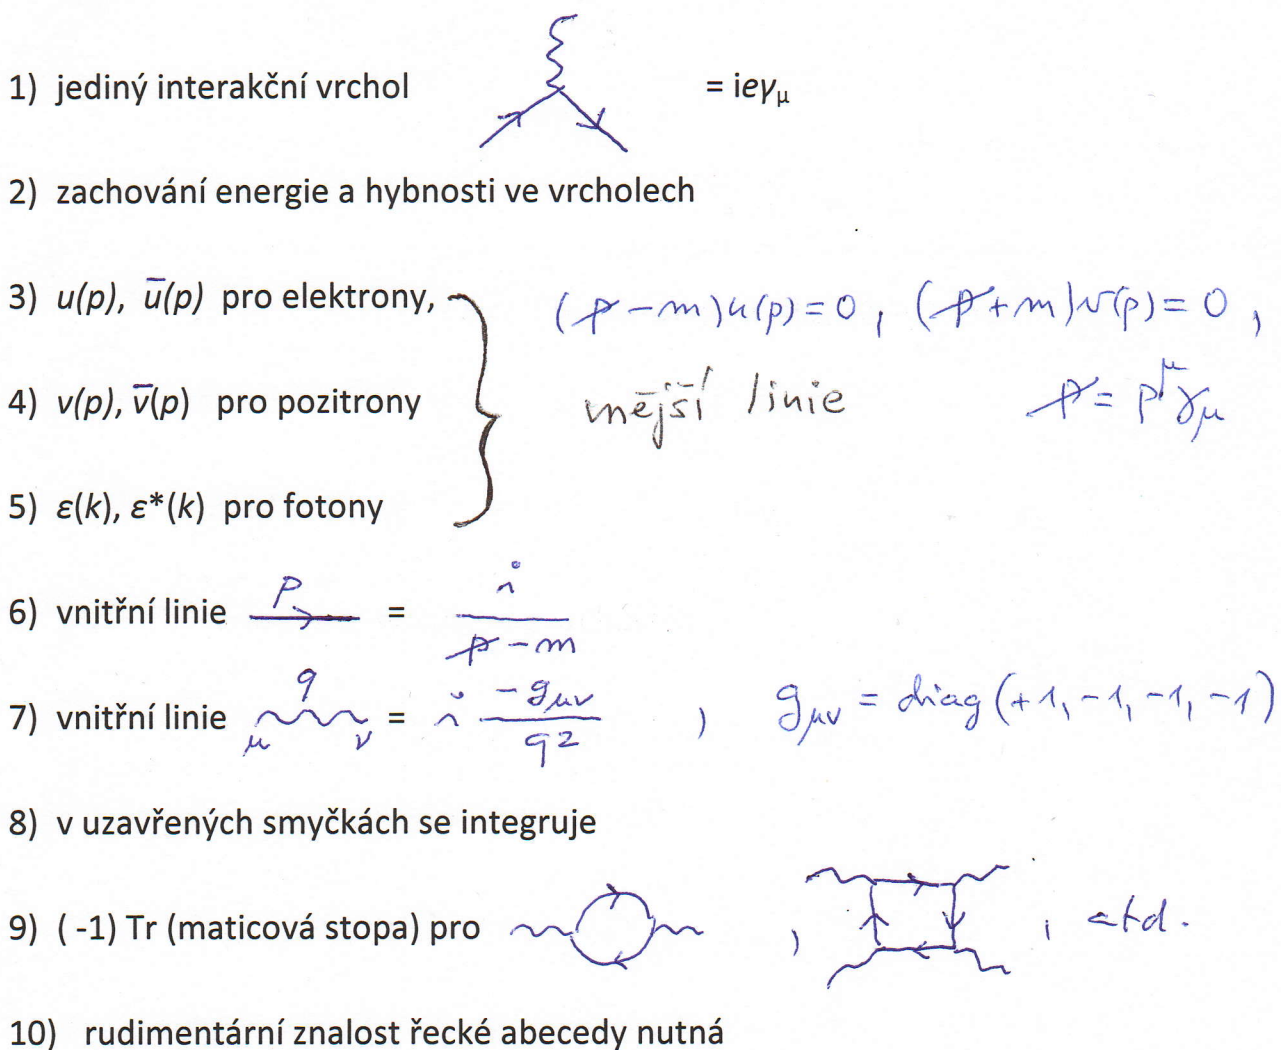 1) jediný interakční vrchol = ieγμ
2) zachování energie a hybnosti ve vrcholech
3) u(p), ū(p) pro elektrony, (p̸ - m)u(p) = 0, (p̸ + m)v(p) = 0,
4) v(p), v̄(p) pro pozitrony vnější linie p̸ = p^μ γ_μ
5) ε(k), ε*(k) pro fotony
6) vnitřní linie p = i / (p̸ - m)
7) vnitřní linie μ q ν = i (-g_μν) / q², g_μν = diag(+1, -1, -1, -1)
8) v uzavřených smyčkách se integruje
9) ( -1) Tr (maticová stopa) pro , , atd.
10) rudimentární znalost řecké abecedy nutná